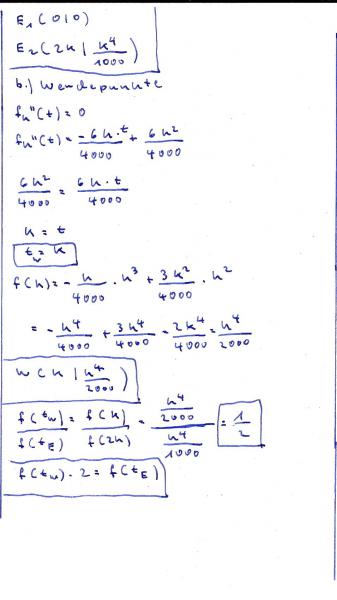 E₁(0|0)
E₂(2k | k⁴/1000)
b.) Wendepunkte
fₖ''(t) = 0
fₖ''(t) = -6k·t/4000 + 6k²/4000
6k²/4000 = 6k·t/4000
k = t
t_w = k
f(k) = -k/4000 · k³ + 3k²/4000 · k²
= -k⁴/4000 + 3k⁴/4000 = 2k⁴/4000 = k⁴/2000
W(k | k⁴/2000)
f(t_w)/f(t_E) = f(k)/f(2k) = (k⁴/2000)/(k⁴/1000) = 1/2
f(t_w) · 2 = f(t_E)